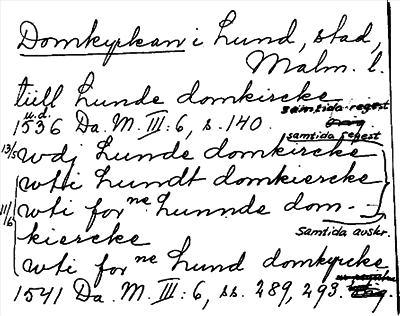 Domkyrkan i Lund, stad,
Malm. l.
tiill Lunde domkircke
samtida regest
u.d.
1536 Da. M. III: 6, s. 140.
samtida regest
13/5 wdj Lunde domkircke
wti Lundt domkiercke
11/6 wti for ne Lunnde dom-
kiercke
samtida avskr.
wti for ne Lund domkyrcke
1541 Da. M. III: 6, ss. 289, 293.